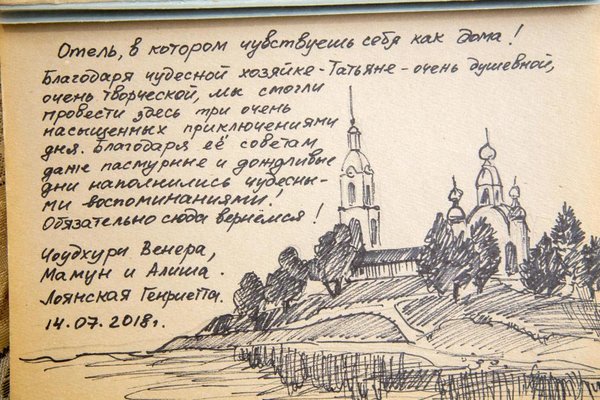 Отель, в котором чувствуешь себя как дома!
Благодаря чудесной хозяйке - Татьяне - очень душевной,
очень творческой, мы смогли
провести здесь три очень
насыщенных приключениями
дня. Благодаря её советам
даже пасмурные и дождливые
дни наполнились чудесны-
ми воспоминаниями!
Обязательно сюда вернёмся!
Чоудхури Венера,
Мамун и Алиша.
Лоянская Генриетта.
14.07.2018г.